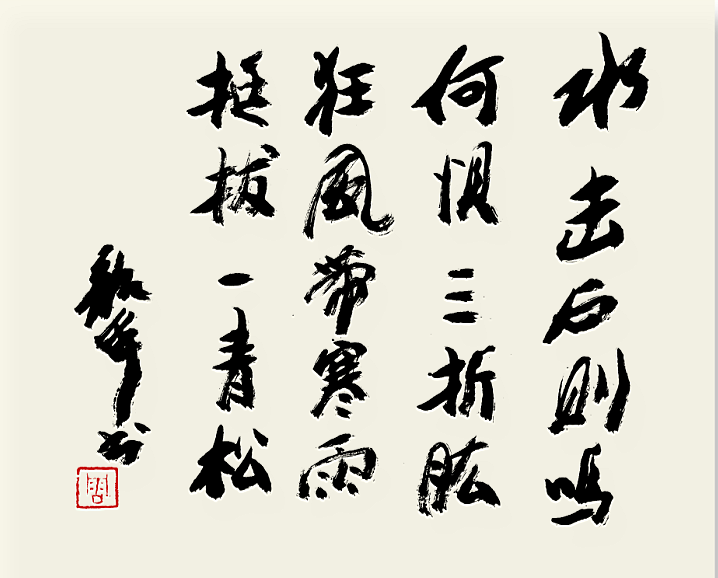 水击石则鸣
何惧三折肱
狂風带寒雨
挺拔一青松